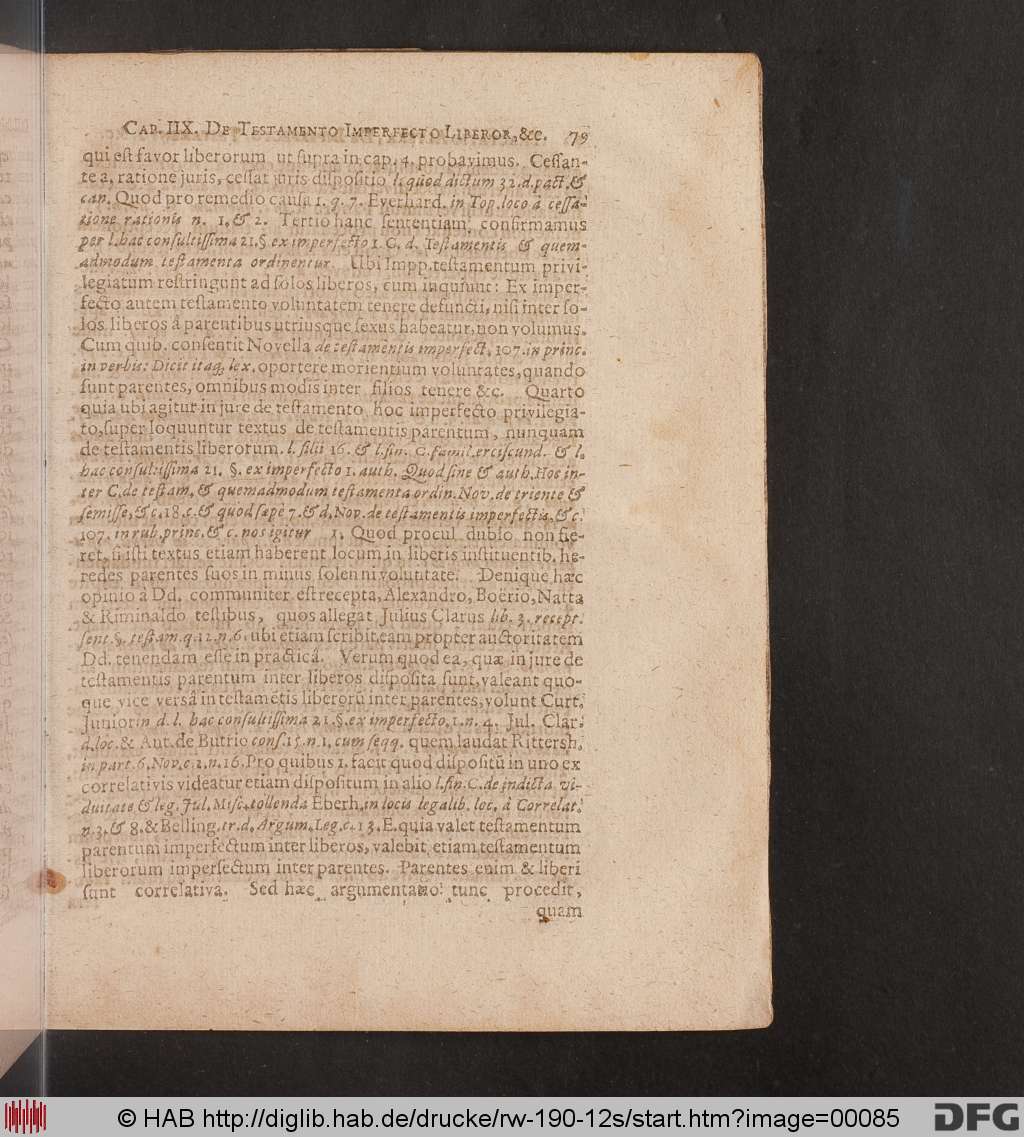 CAP. IIX. DE TESTAMENTO IMPERFECTO LIBEROR, &c. 79
qui est favor liberorum ut supra in cap. 4. probavimus. Cessan-
te a. ratione juris, cessat juris dispositio l. quod dictum 32. d. pact. &
can. Quod pro remedio causa 1. q. 7. Everhard. in Top. loco à cessa-
tione rationis n. 1. & 2. Tertio hanc sententiam confirmamus
per l. hac consultissima 21. § ex imperfecto 1. C. d. Testamentis & quem-
admodum testamenta ordinentur. Ubi Impp. testamentum privi-
legiatum restringunt ad solos liberos, cum inquiunt: Ex imper-
fecto autem testamento voluntatem tenere defuncti, nisi inter so-
los liberos â parentibus utriusque sexus habeatur, non volumus.
Cum quib. consentit Novella de testamentis imperfect. 107. in princ.
in verbis: Dicit itaq; lex, oportere morientium voluntates, quando
sunt parentes, omnibus modis inter filios tenere &c. Quarto
quia ubi agitur in jure de testamento hoc imperfecto privilegia-
to, super loquuntur textus de testamentis parentum, nunquam
de testamentis liberorum. l. filii 16. & l. fin. C. famil. erciscund. & l.
hac consultissima 21. §. ex imperfecto 1. auth. Quod sine & auth. Hoc in-
ter C. de testam. & quemadmodum testamenta ordin. Nov. de triente &
semisse, & c. 18. c. & quod sæpe 7. & d. Nov. de testamentis imperfectis. & c.
107. in rub. princ. & c. nos igitur 1. Quod procul dubio non fie-
ret, si isti textus etiam haberent locum in liberis instituentib. he-
redes parentes suos in minus solenni voluntate. Denique hæc
opinio à Dd. communiter est recepta, Alexandro, Boërio, Natta
& Riminaldo testibus, quos allegat Julius Clarus lib. 3. recept.
sent. §. testam. q. 12. n. 6. ubi etiam scribit, eam propter auctoritatem
Dd. tenendam esse in practicâ. Verum quod ea, quæ in jure de
testamentis parentum inter liberos disposita sunt, valeant quo-
que vice versâ in testamētis liberorū inter parentes, volunt Curt.
Junior in d. l. hac consultissima 21. §. ex imperfecto, 1. n. 4. Jul. Clar.
d. loc. & Ant. de Butrio cons. 15. n. 1. cum seqq. quem laudat Rittersh.
in part. 6. Nov. c. 2. n. 16. Pro quibus 1. facit quod dispositū in uno ex
correlativis videatur etiam dispositum in alio l. fin. C. de indicta vi-
duitate & leg. Jul. Misc. tollenda Eberh. in locis legalib. loc. à Correlat.
n. 3. & 8. & Belling. tr. d. Argum. Leg. c. 13. E. quia valet testamentum
parentum imperfectum inter liberos, valebit etiam testamentum
liberorum imperfectum inter parentes. Parentes enim & liberi
sunt correlativa. Sed hæc argumentatio tunc procedit,
quam
© HAB http://diglib.hab.de/drucke/rw-190-12s/start.htm?image=00085
DFG